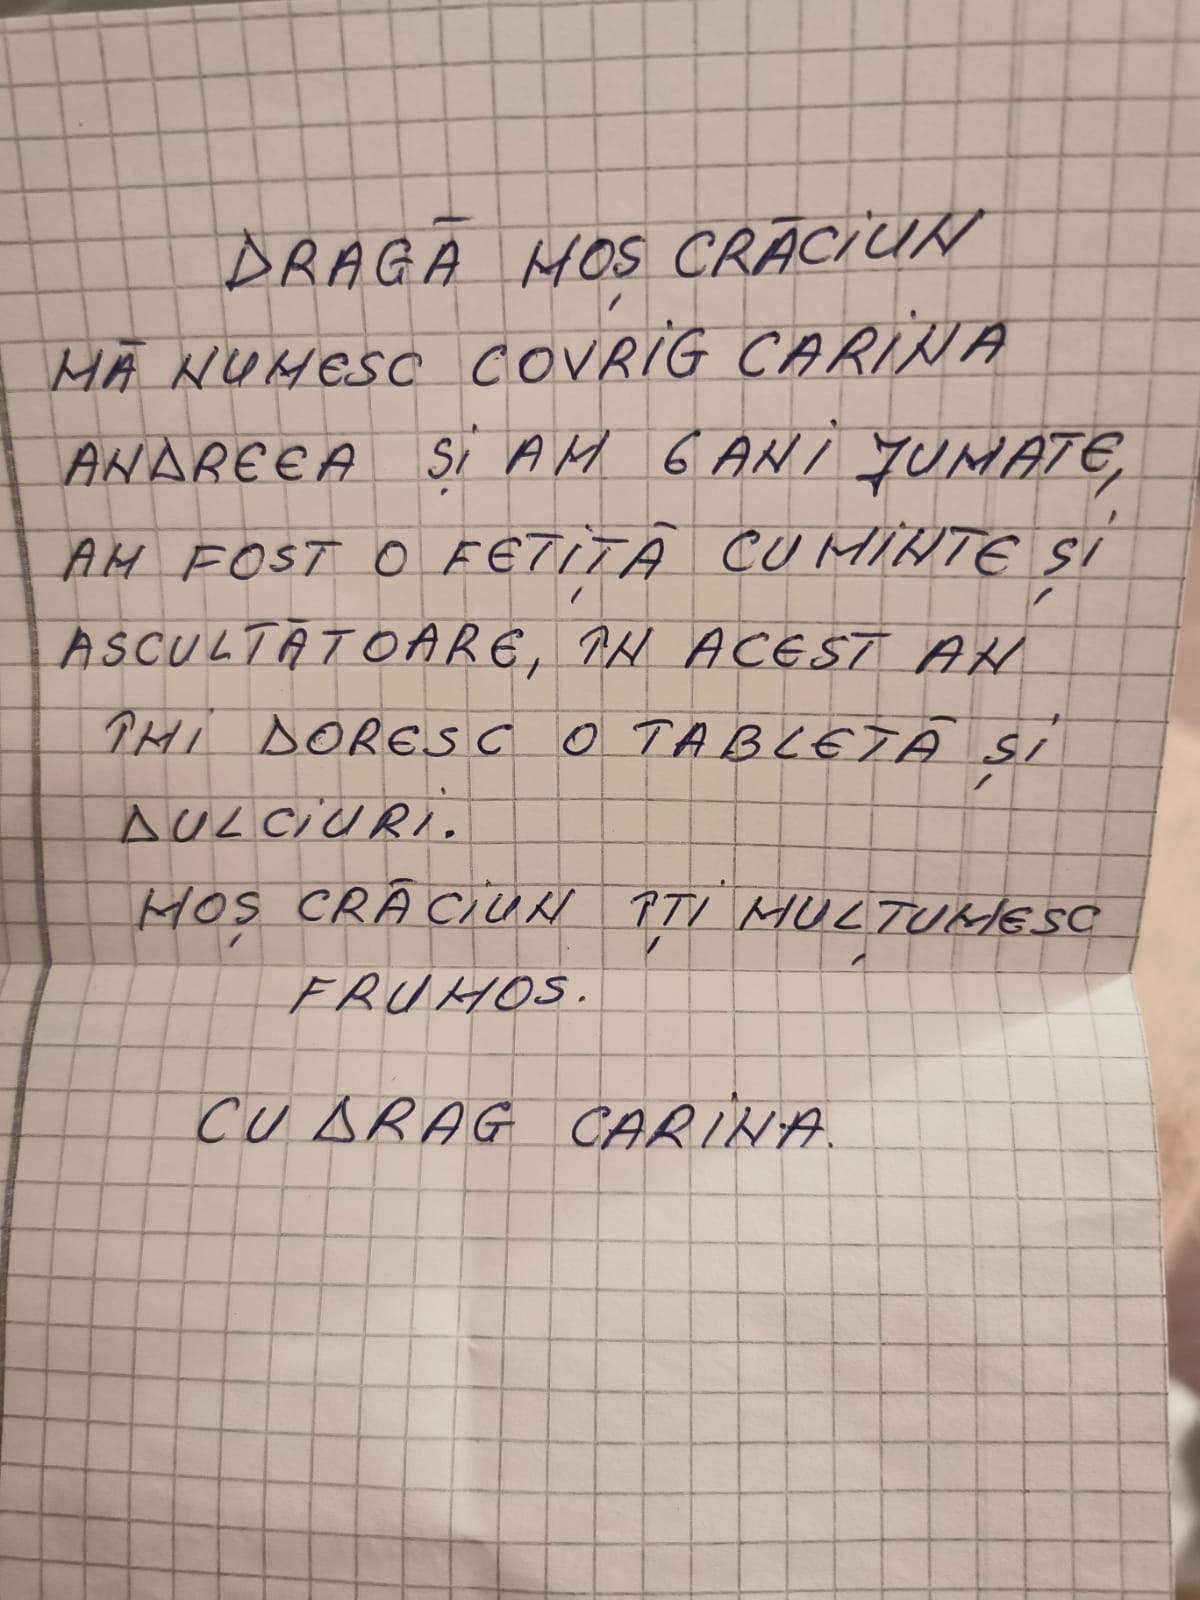 DRAGĂ MOȘ CRĂCIUN
MĂ NUMESC COVRIG CARINA
ANDREEA ȘI AM 6 ANI JUMATE,
AM FOST O FETIȚĂ CUMINTE ȘI
ASCULTĂTOARE, ÎN ACEST AN
ÎMI DORESC O TABLETĂ ȘI
DULCIURI.
MOȘ CRĂCIUN ÎȚI MULȚUMESC
FRUMOS.
CU DRAG CARINA.